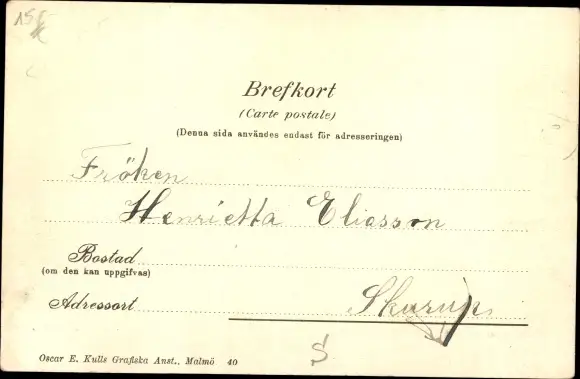 15
Brefkort
(Carte postale)
(Denna sida användes endast för adresseringen)
Fröken
Henrietta Eliasson
Bostad
(om den kan uppgifvas)
Adressort Skurup
S
Oscar E. Kulls Grafiska Anst., Malmö 40